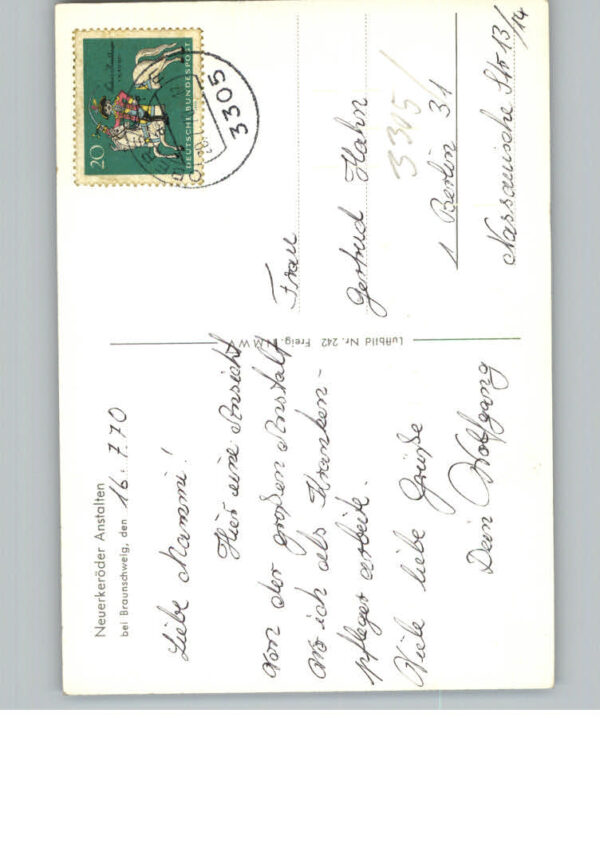 Neuerkeröder Anstalten
bei Braunschweig, den 16.7.70
Liebe Mammi!
Hier eine Ansicht
von der großen Anstalt
wo ich als Kranken-
pfleger arbeite.
Viele liebe Grüße
Dein Wolfgang
Luftbild Nr. 242 Freig.
20
DEUTSCHE BUNDESPOST
3305
Frau
Gertrud Hahn
3305
1 Berlin 31
Nassauische Str 13/14